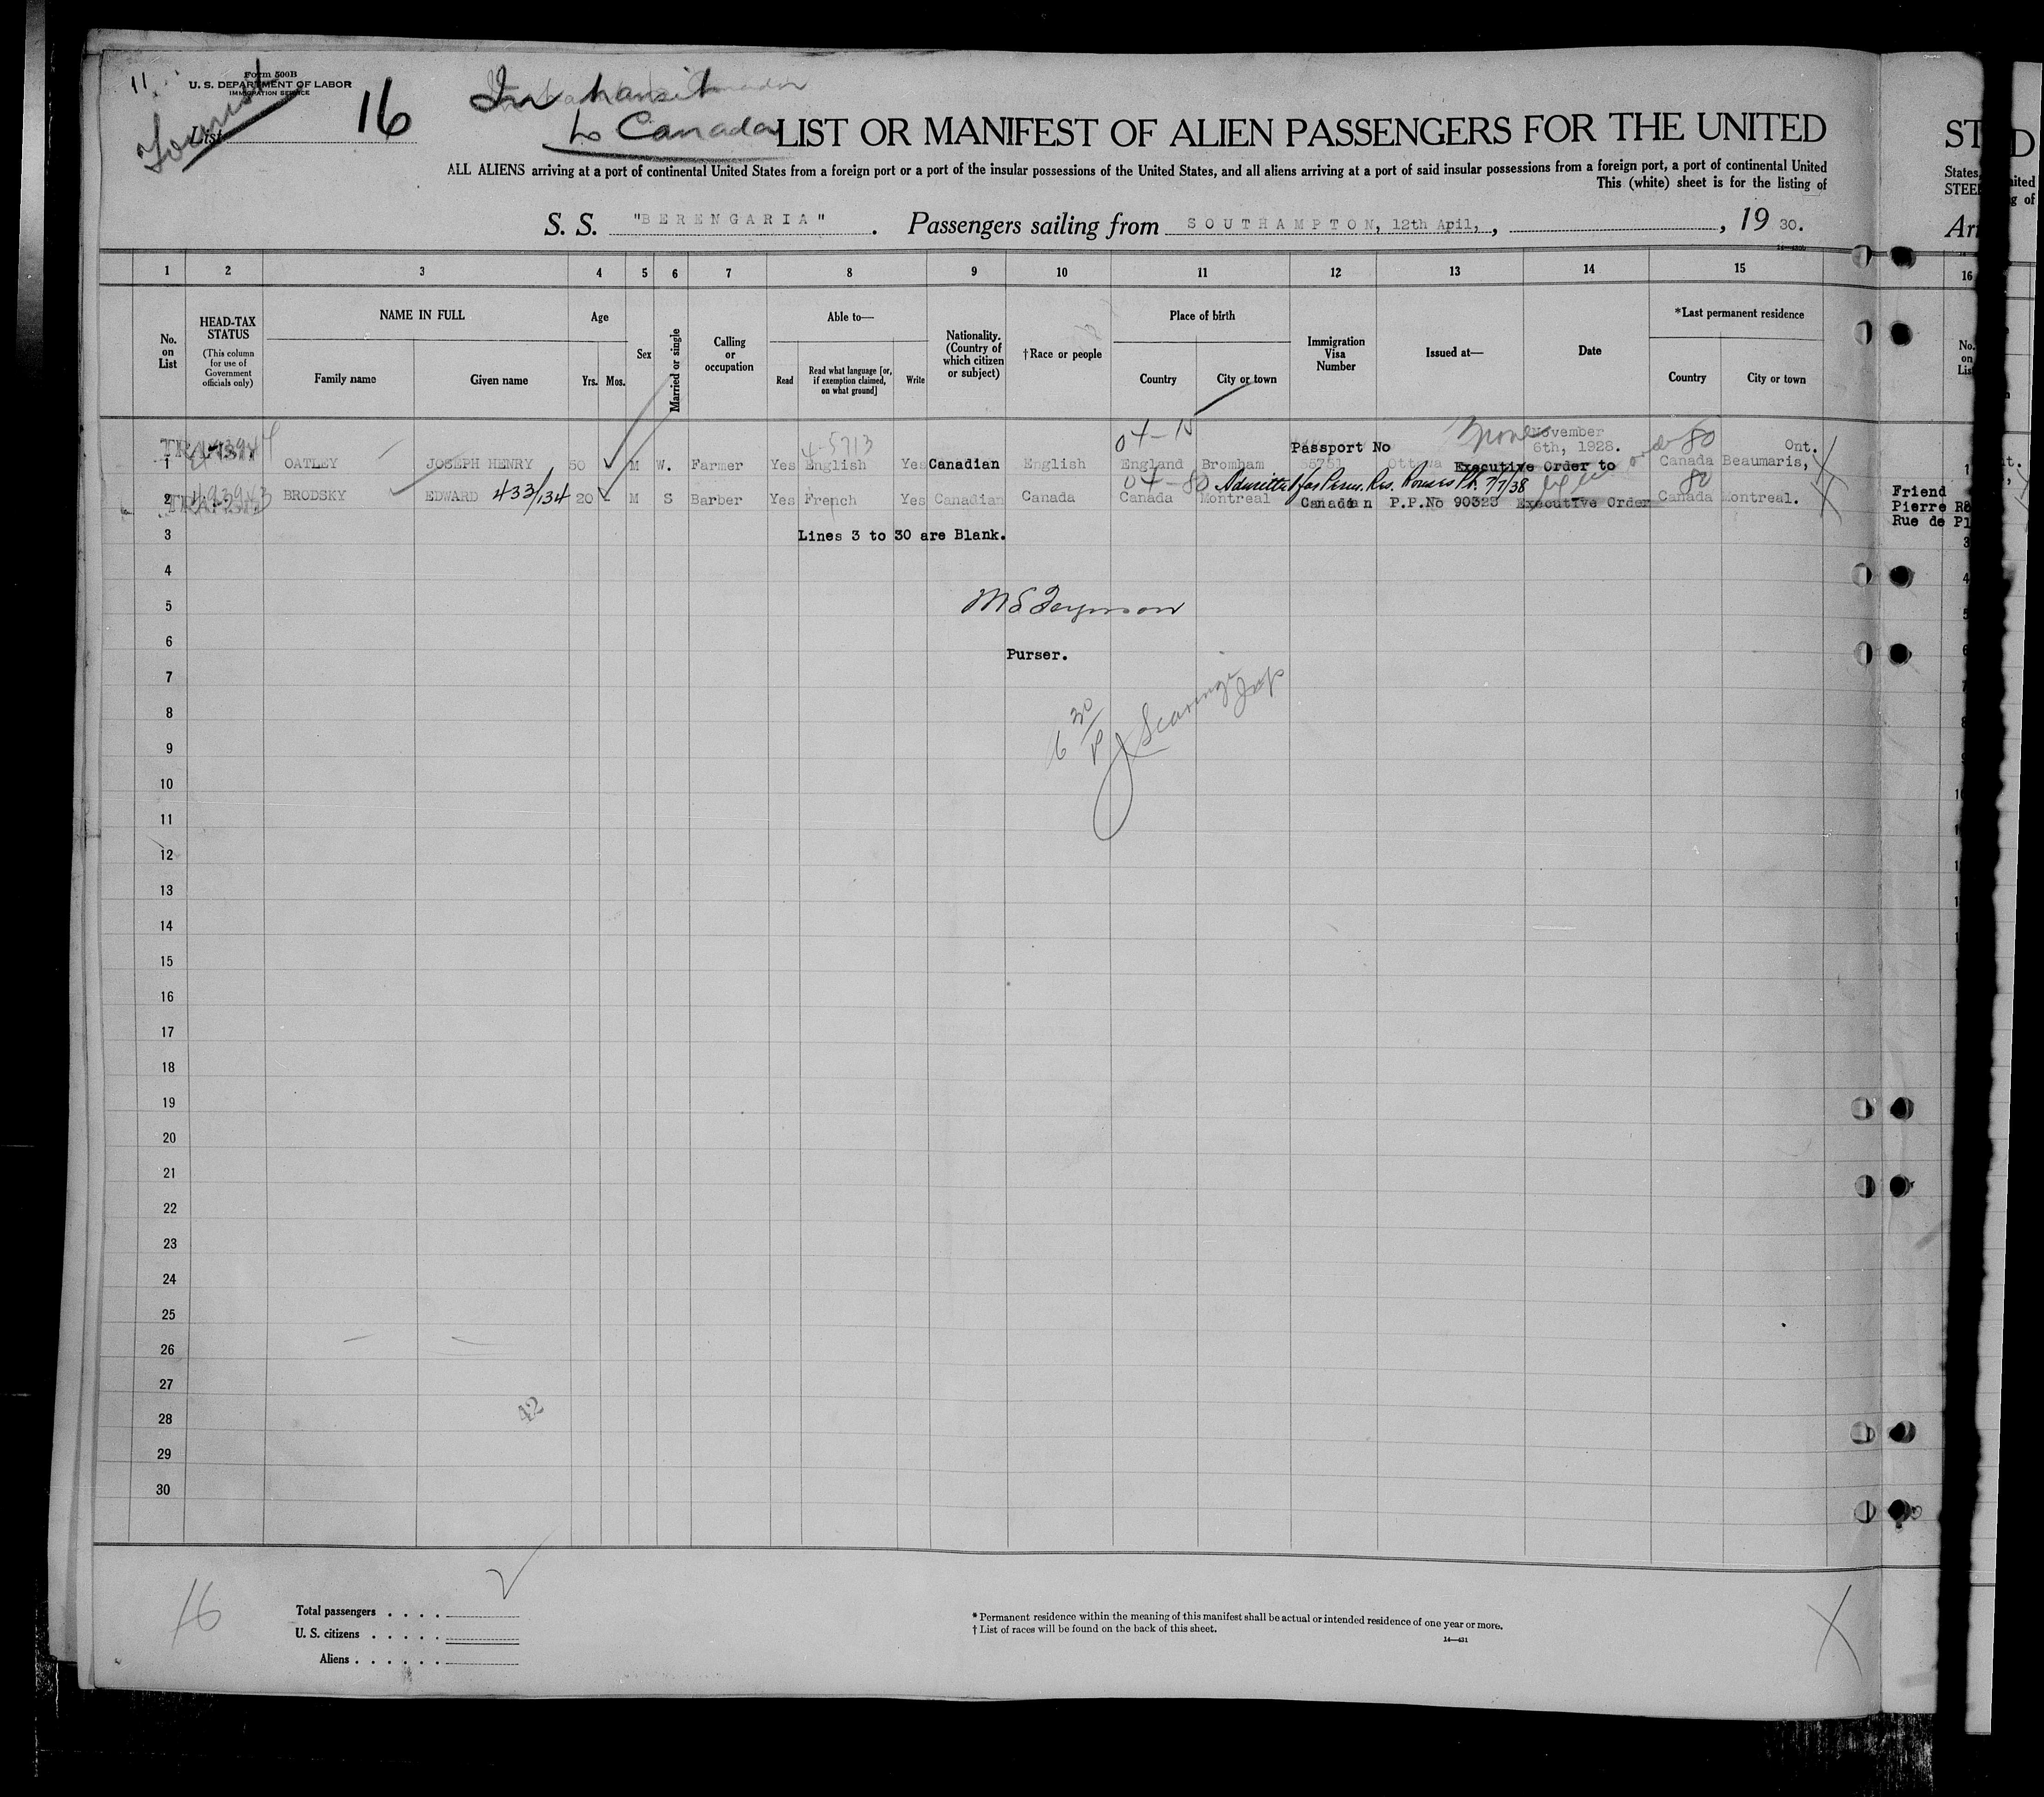 11.
Form 500B
U. S. DEPARTMENT OF LABOR
IMMIGRATION SERVICE
Tourist
List 16
In transit
to Canada
LIST OR MANIFEST OF ALIEN PASSENGERS FOR THE UNITED
ALL ALIENS arriving at a port of continental United States from a foreign port or a port of the insular possessions of the United States, and all aliens arriving at a port of said insular possessions from a foreign port, a port of continental United
This (white) sheet is for the listing of
S. S. "BERENGARIA". Passengers sailing from SOUTHAMPTON, 12th April, , 19 30.
1 2 3 4 5 6 7 8 9 10 11 12 13 14 15
No. on List
HEAD-TAX STATUS
(This column for use of Government officials only)
NAME IN FULL
Family name
Given name
Age
Yrs. Mos.
Sex
Married or single
Calling or occupation
Able to—
Read
Read what language [or, if exemption claimed, on what ground]
Write
Nationality. (Country of which citizen or subject)
†Race or people
Place of birth
Country
City or town
Immigration Visa Number
Issued at—
Date
*Last permanent residence
Country
City or town
04-15
4-5713
Passport No
November
6th, 1928.
80
Ont.
1 OATLEY JOSEPH HENRY 50 M W. Farmer Yes English Yes Canadian English England Bromham 65751 Ottawa Executive Order to Canada Beaumaris,
04-80
80
2 BRODSKY EDWARD 433/134 20 - M S Barber Yes French Yes Canadian Canada Canada Montreal Canadian P.P.No 90323 Executive Order Canada Montreal.
3 Lines 3 to 30 are Blank.
4
5
6
Purser.
7
8
6 30/P
9
10
11
12
13
14
15
16
17
18
19
20
21
22
23
24
25
26
27
28
42
29
30
16
Total passengers . . . .
U. S. citizens . . . . .
Aliens . . . . . .
* Permanent residence within the meaning of this manifest shall be actual or intended residence of one year or more.
† List of races will be found on the back of this sheet.
14—431
ST
States,
STEE
Ar
16
No. on List
1
Friend
Pierre
Rue de